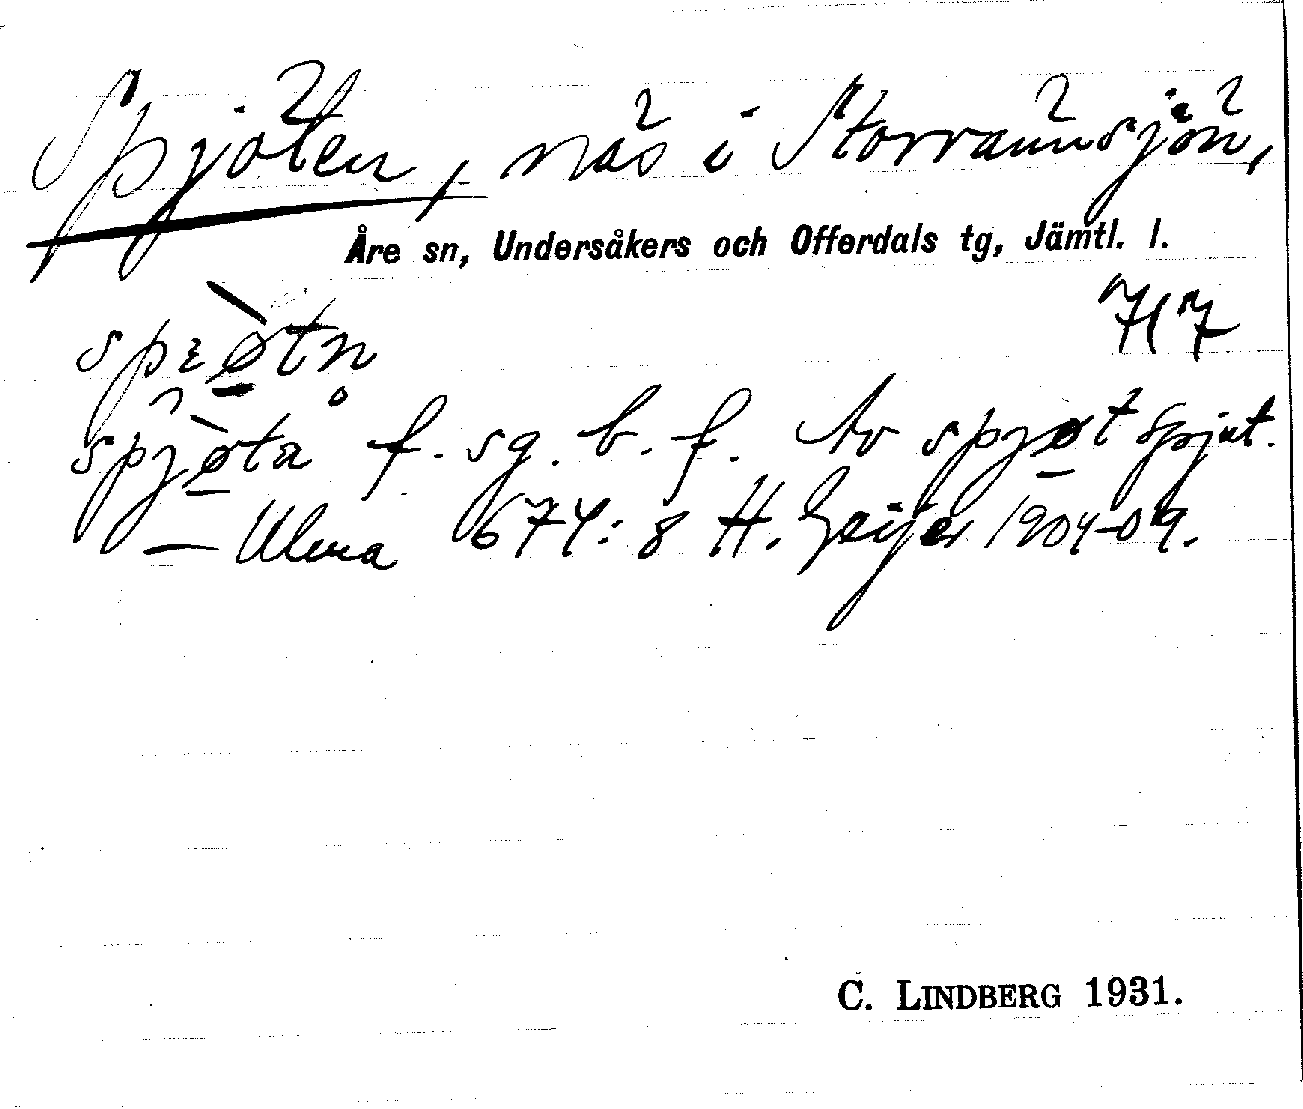 Spjöten, näs i Storrännsjön,
Åre sn, Undersåkers och Offerdals tg, Jämtl. l.
717
spɛø̀tn
spjø̀ta f. sg. b. f. Av spjøt spjut.
— Ulma 674: 8 H. Geijer 1904-09.
C. LINDBERG 1931.